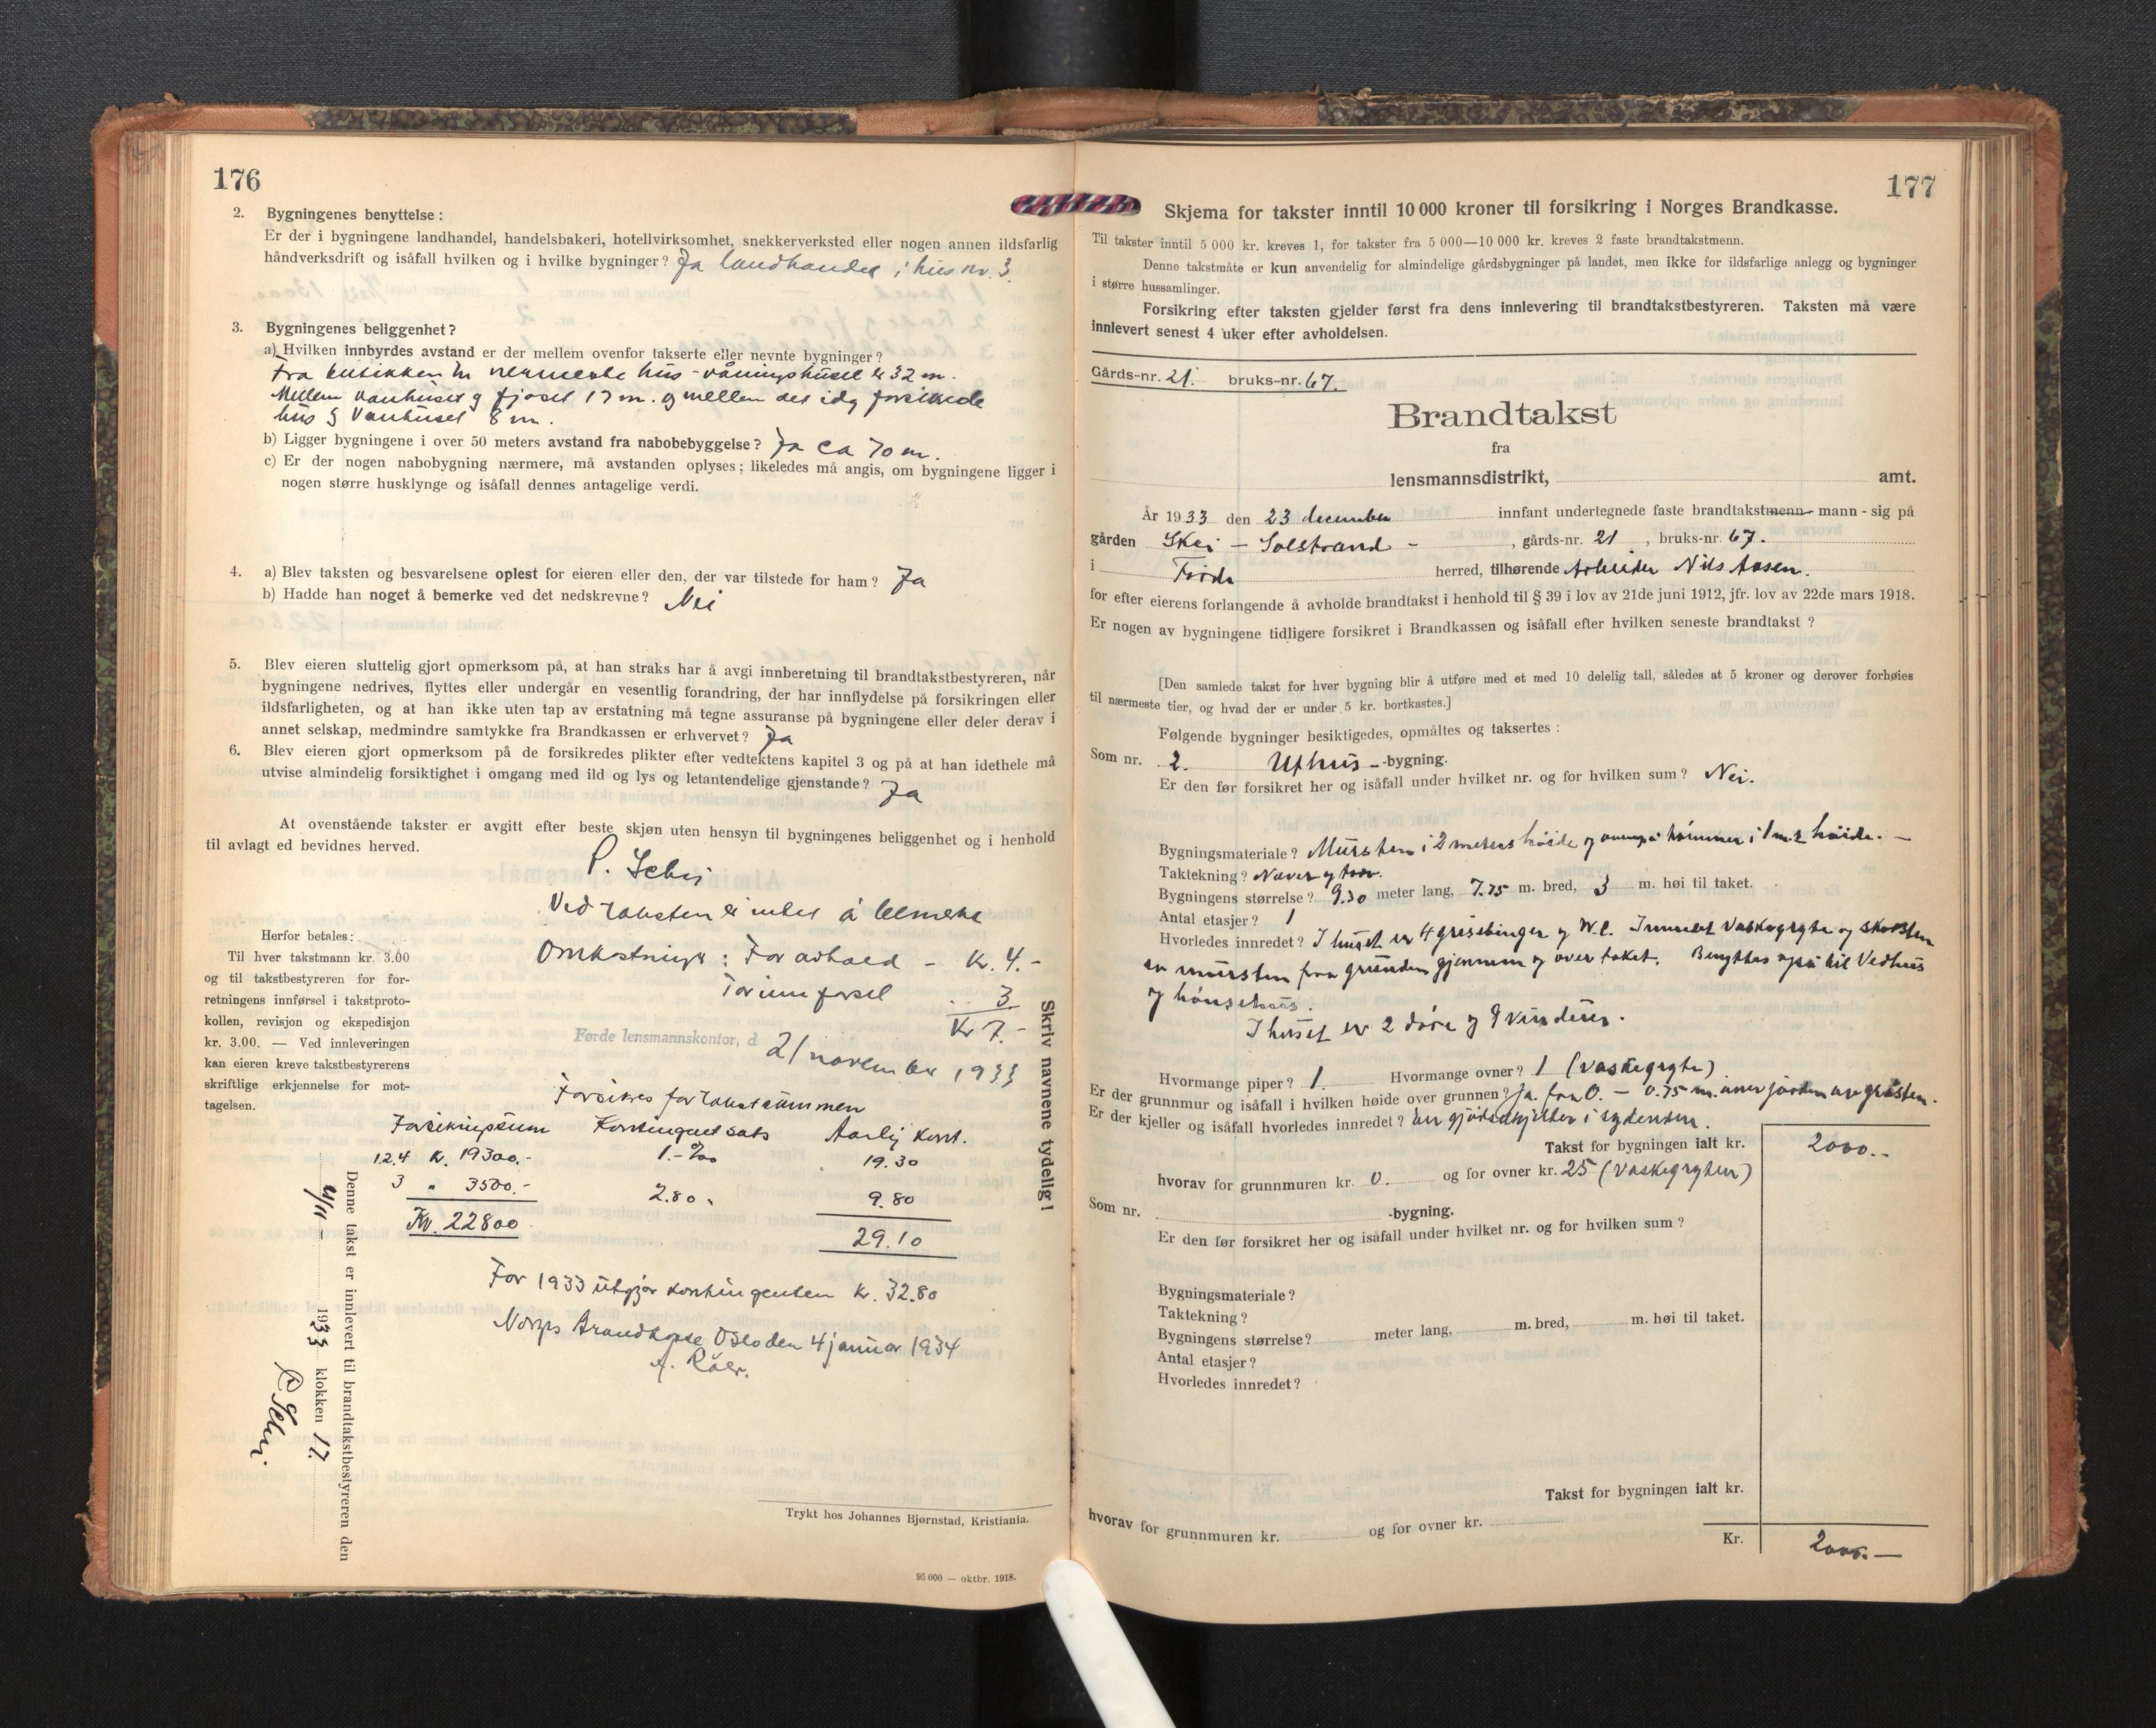 176
2. Bygningenes benyttelse:
Er der i bygningene landhandel, handelsbakeri, hotellvirksomhet, snekkerverksted eller nogen annen ildsfarlig
håndverksdrift og isåfall hvilken og i hvilke bygninger? Ja landhandel i hus nr. 3.
3. Bygningenes beliggenhet?
a) Hvilken innbyrdes avstand er der mellem ovenfor takserte eller nevnte bygninger?
Fra butikken til nermeste hus - våningshuset er 32 m.
Mellem vånhuset og fjøset 17 m. og mellem det idag forsikrede
hus og Vånhuset 8 m.
b) Ligger bygningene i over 50 meters avstand fra nabobebyggelse? Ja ca 70 m.
c) Er der nogen nabobygning nærmere, må avstanden oplyses; likeledes må angis, om bygningene ligger i
nogen større husklynge og isåfall dennes antagelige verdi.
4. a) Blev taksten og besvarelsene oplest for eieren eller den, der var tilstede for ham? Ja
b) Hadde han noget å bemerke ved det nedskrevne? Nei
5. Blev eieren sluttelig gjort opmerksom på, at han straks har å avgi innberetning til brandtakstbestyreren, når
bygningene nedrives, flyttes eller undergår en vesentlig forandring, der har innflydelse på forsikringen eller
ildsfarligheten, og at han ikke uten tap av erstatning må tegne assuranse på bygningene eller deler derav i
annet selskap, medmindre samtykke fra Brandkassen er erhvervet? Ja
6. Blev eieren gjort opmerksom på de forsikredes plikter efter vedtektens kapitel 3 og på at han idethele må
utvise almindelig forsiktighet i omgang med ild og lys og letantendelige gjenstande? Ja
At ovenstående takster er avgitt efter beste skjøn uten hensyn til bygningenes beliggenhet og i henhold
til avlagt ed bevidnes herved.
Ved taksten er intet å bemerke
Omkostninger: For avhold - Kr. 4.-
For innførsel 3
Kr 7.-
Førde lensmannskontor, d 21 november 1933
Herfor betales:
Til hver takstmann kr. 3.00
og til takstbestyreren for for-
retningens innførsel i takstproto-
kollen, revisjon og ekspedisjon
kr. 3.00. — Ved innleveringen
kan eieren kreve takstbestyrerens
skriftlige erkjennelse for mot-
tagelsen.
Skriv navnene tydelig!
Forsikres for takstsummen
Forsikringssum Kontingentsats Aarlig kont.
1.2.4 Kr. 19300.- 1.- ‰ 19.30
3 " 3500.- 2.80 " 9.80
Kr. 22800 29.10
For 1933 utgjør kontingenten Kr. 32.80
Norges Brandkasse Oslo den 4 januar 1934
Denne takst er innlevert til brandtakstbestyreren den
21/11 - 1933 klokken 17.
Trykt hos Johannes Bjørnstad, Kristiania.
95 000 — oktbr. 1918.
177
Skjema for takster inntil 10 000 kroner til forsikring i Norges Brandkasse.
Til takster inntil 5 000 kr. kreves 1, for takster fra 5 000—10 000 kr. kreves 2 faste brandtakstmenn.
Denne takstmåte er kun anvendelig for almindelige gårdsbygninger på landet, men ikke for ildsfarlige anlegg og bygninger
i større hussamlinger.
Forsikring efter taksten gjelder først fra dens innlevering til brandtakstbestyreren. Taksten må være
innlevert senest 4 uker efter avholdelsen.
Gårds-nr. 21. bruks-nr. 67.
Brandtakst
fra
lensmannsdistrikt, amt.
År 1933 den 23 december innfant undertegnede faste brandtakstmenn - mann - sig på
gården Skei - Solstrand - , gårds-nr. 21 , bruks-nr. 67.
i Førde herred, tilhørende Arbeider Nils Aasen.
for efter eierens forlangende å avholde brandtakst i henhold til § 39 i lov av 21de juni 1912, jfr. lov av 22de mars 1918.
Er nogen av bygningene tidligere forsikret i Brandkassen og isåfall efter hvilken seneste brandtakst?
[Den samlede takst for hver bygning blir å utføre med et med 10 delelig tall, således at 5 kroner og derover forhøies
til nærmeste tier, og hvad der er under 5 kr. bortkastes.]
Følgende bygninger besiktigedes, opmåltes og taksertes:
Som nr. 2. Uthus -bygning.
Er den før forsikret her og isåfall under hvilket nr. og for hvilken sum? Nei.
Bygningsmateriale? Mursten i 2 meters høide og ovenpå tømmer i 1 m.s høide. -
Taktekning? Næver og torv.
Bygningens størrelse? 9.30 meter lang, 7.75 m. bred, 3 m. høi til taket.
Antal etasjer? 1
Hvorledes innredet? I huset er 4 grisebinger og W.C. Innmuret Vaskegryte og skorsten
av mursten fra grunden gjennem og over taket. Benyttes også til Vedhus
og hønsehus.
I huset er 2 døre og 9 vinduer.
Hvormange piper? 1. Hvormange ovner? 1 (vaskegryte)
Er der grunnmur og isåfall i hvilken høide over grunnen? Ja. fra 0. - 0.75 m. over jorden av gråsten.
Er der kjeller og isåfall hvorledes innredet? En gjødselkjeller i sydenden.
Takst for bygningen ialt kr. 2000.-
hvorav for grunnmuren kr. 0. og for ovner kr. 25 (vaskegryten)
Som nr. -bygning.
Er den før forsikret her og isåfall under hvilket nr. og for hvilken sum?
Bygningsmateriale?
Taktekning?
Bygningens størrelse? meter lang, m. bred, m. høi til taket.
Antal etasjer?
Hvorledes innredet?
Takst for bygningen ialt kr.
hvorav for grunnmuren kr. og for ovner kr.
Kr. 2000.-